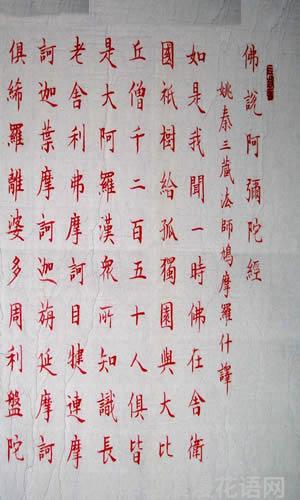 佛說阿彌陀經
姚秦三藏法師鳩摩羅什譯
如是我聞一時佛在舍衛
國祇樹給孤獨園與大比
丘僧千二百五十人俱皆
是大阿羅漢眾所知識長
老舍利弗摩訶目犍連摩
訶迦葉摩訶迦旃延摩訶
俱絺羅離婆多周利盤陀
花语网